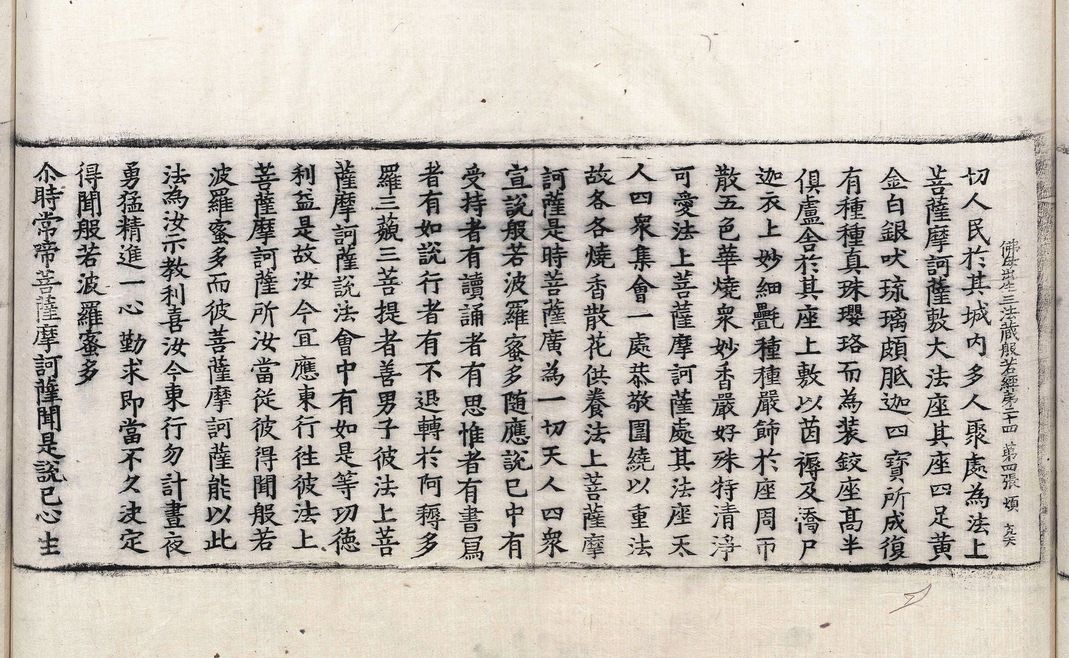 佛母出生三法藏般若經第二十四 第四張 煩
切人民於其城内多人聚處為法上
菩薩摩訶薩敷大法座其座四足黄
金白銀吠琉璃頗胝迦四寶所成復
有種種真珠瓔珞而為装鉸座髙半
俱盧舍於其座上敷以茵褥及憍尸
迦衣上妙細㲲種種嚴飾於座周帀
散五色華燒衆妙香嚴好殊特清淨
可愛法上菩薩摩訶薩處其法座天
人四衆集會一處恭敬圍繞以重法
故各各燒香散花供養法上菩薩摩
訶薩是時菩薩廣為一切天人四衆
宣説般若波羅蜜多随應說已中有
受持者有讀誦者有思惟者有書寫
者有如說行者有不退轉於阿耨多
羅三藐三菩提者善男子彼法上菩
薩摩訶薩説法會中有如是等功徳
利益是故汝今宜應東行徃彼法上
菩薩摩訶薩所汝當従彼得聞般若
波羅蜜多而彼菩薩摩訶薩能以此
法為汝示教利喜汝今東行勿計晝夜
勇猛精進一心勤求即當不久决定
得聞般若波羅蜜多
尒時常啼菩薩摩訶薩聞是說已心生